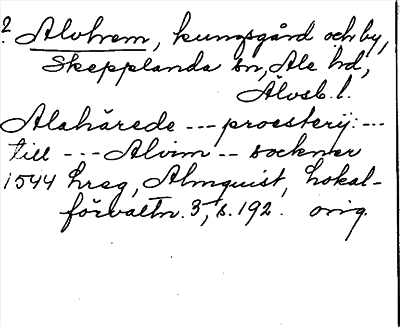 ? Alvhem, kungsgård och by,
Skepplanda sn, Ale hd,
Älvsb. l.
Alahärede --- proesterij: ---
till --- Alvim -- sockner
1544 hreg, Almquist, Lokal-
förvaltn. 3, s. 192. orig.